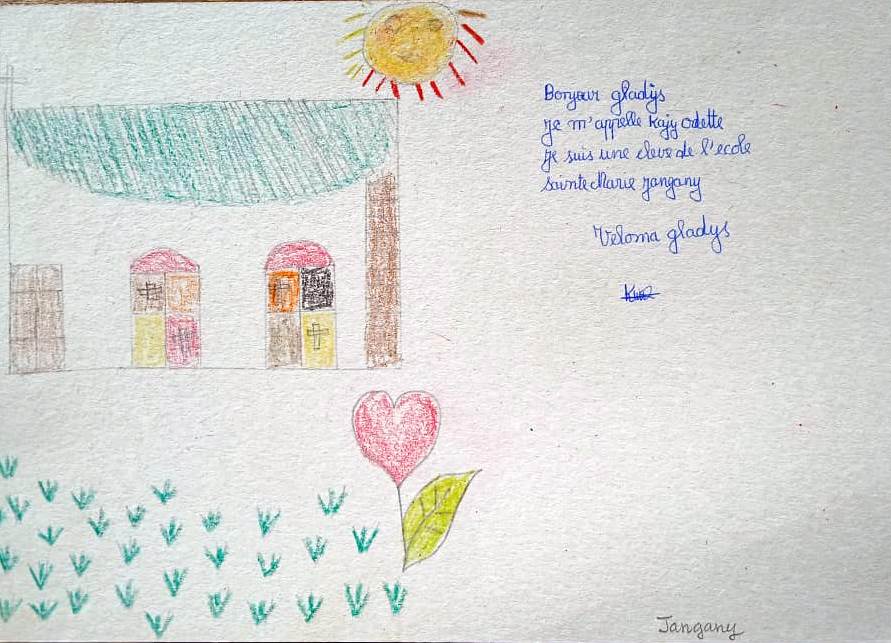 Bonjour gladys
je m'appelle Kajy odette
je suis une eleve de l'ecole
sainte Marie jangany
Veloma gladys
Jangany